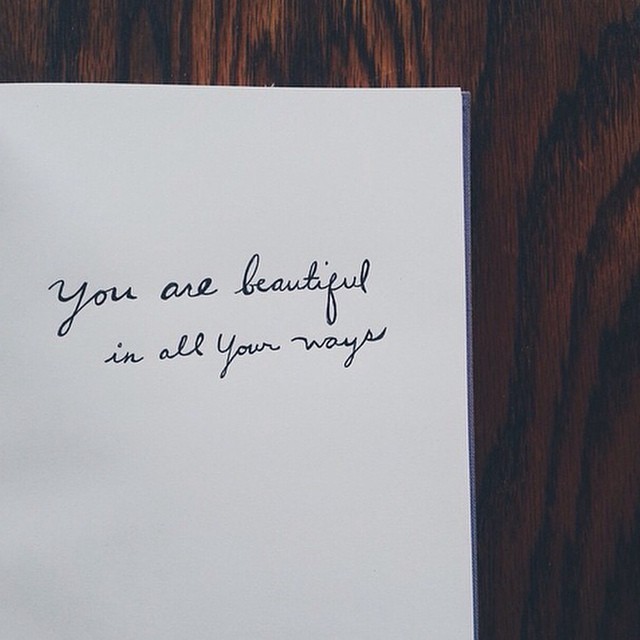 You are beautiful
in all your ways